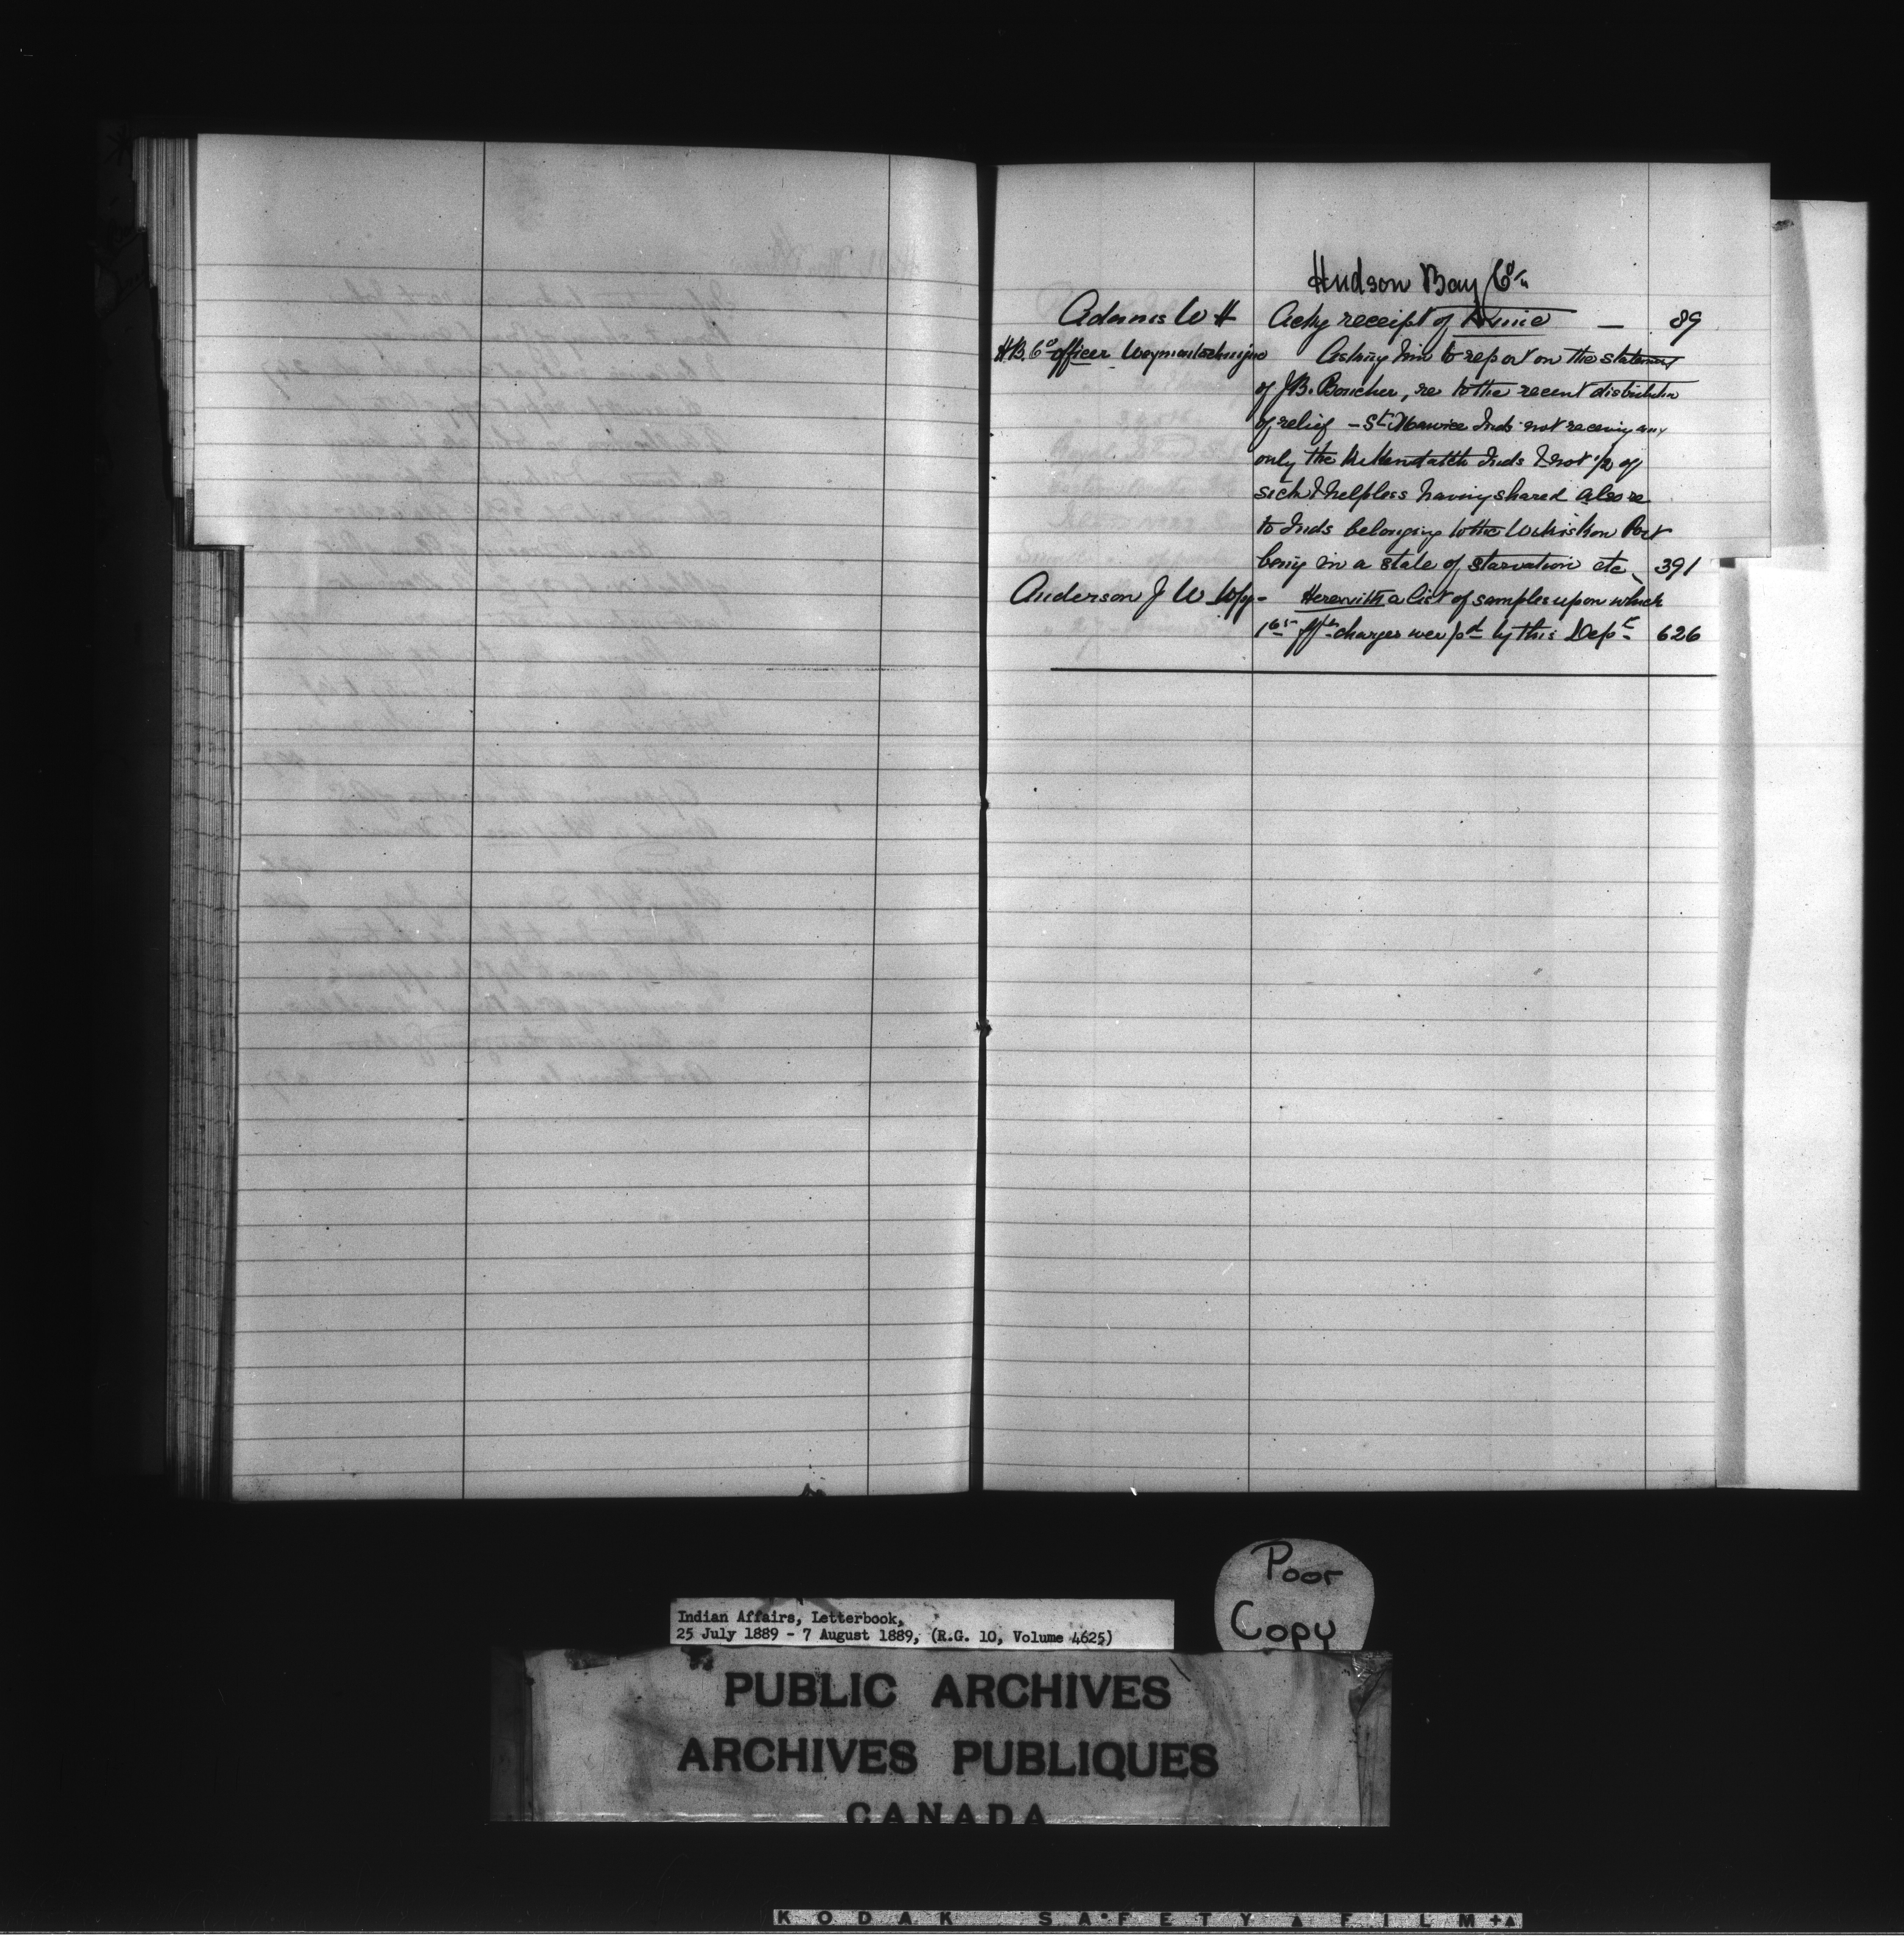 Hudson Bay Co.
Adams W H Ackg receipt of — 89
H.B. Co officer Weymontachingue Asking him to report on the statement
of J.B. Boucher, re to the recent distribution
of relief - St Maurice Inds not receiving any
only the Inds & not 1/2 of
sick & helpless having shared also re
to Inds belonging to the Port
being in a state of starvation etc 391
Anderson J W Wpg - Herewith a list of samples upon which
charges were pd by this Dept 626
Poor
Copy
Indian Affairs, Letterbook,
25 July 1889 - 7 August 1889, (R.G. 10, Volume 4625)
PUBLIC ARCHIVES
ARCHIVES PUBLIQUES
CANADA
KODAK SAFETY FILM